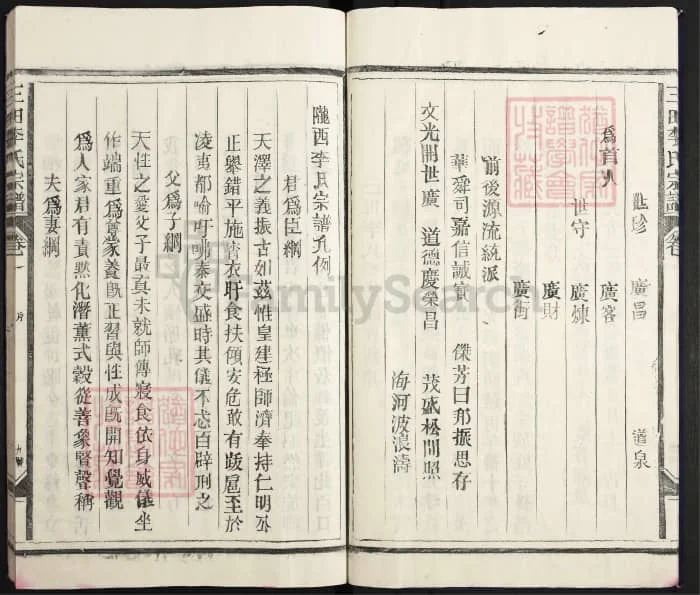 三田李氏宗譜 卷
珍 廣昌 道泉
廣客
為首人 世守 廣煉
廣財
廣街
前後源流統派
華舜司嘉信誠實 傑芳曰邦振思存
文光開世廣 道德慶榮昌 茂盛松間照
海河波浪濤
隴西李氏宗譜凡例
君為臣綱
天澤之義振古如茲惟皇建極師濟奉持仁明外
止舉錯平施宵衣旰食扶傾安危敢有跋扈至於
凌夷都喻吁咈泰交盛時其儀不忒百辟刑之
父為子綱
天性之愛父子最真未就師傅寢食依身威儀坐
作端重為尊蒙養既正習與性成既開知覺觀
為人家君有責默化潛薰式穀從善象賢聲稱
夫為妻綱
三田李氏宗譜 卷一
FamilySearch